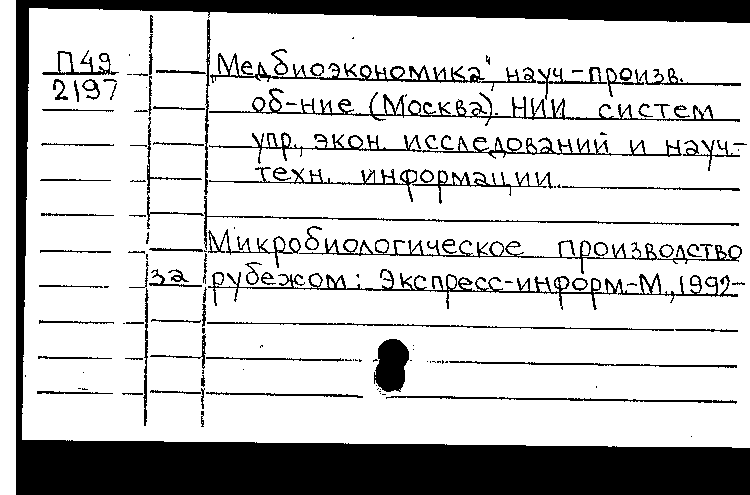 П49
2197
„Медбиоэкономика", науч-произв.
об-ние (Москва). НИИ систем
упр., экон. исследований и науч.-
техн. информации.
Микробиологическое производство
за рубежом: Экспресс-информ-М.,1992-